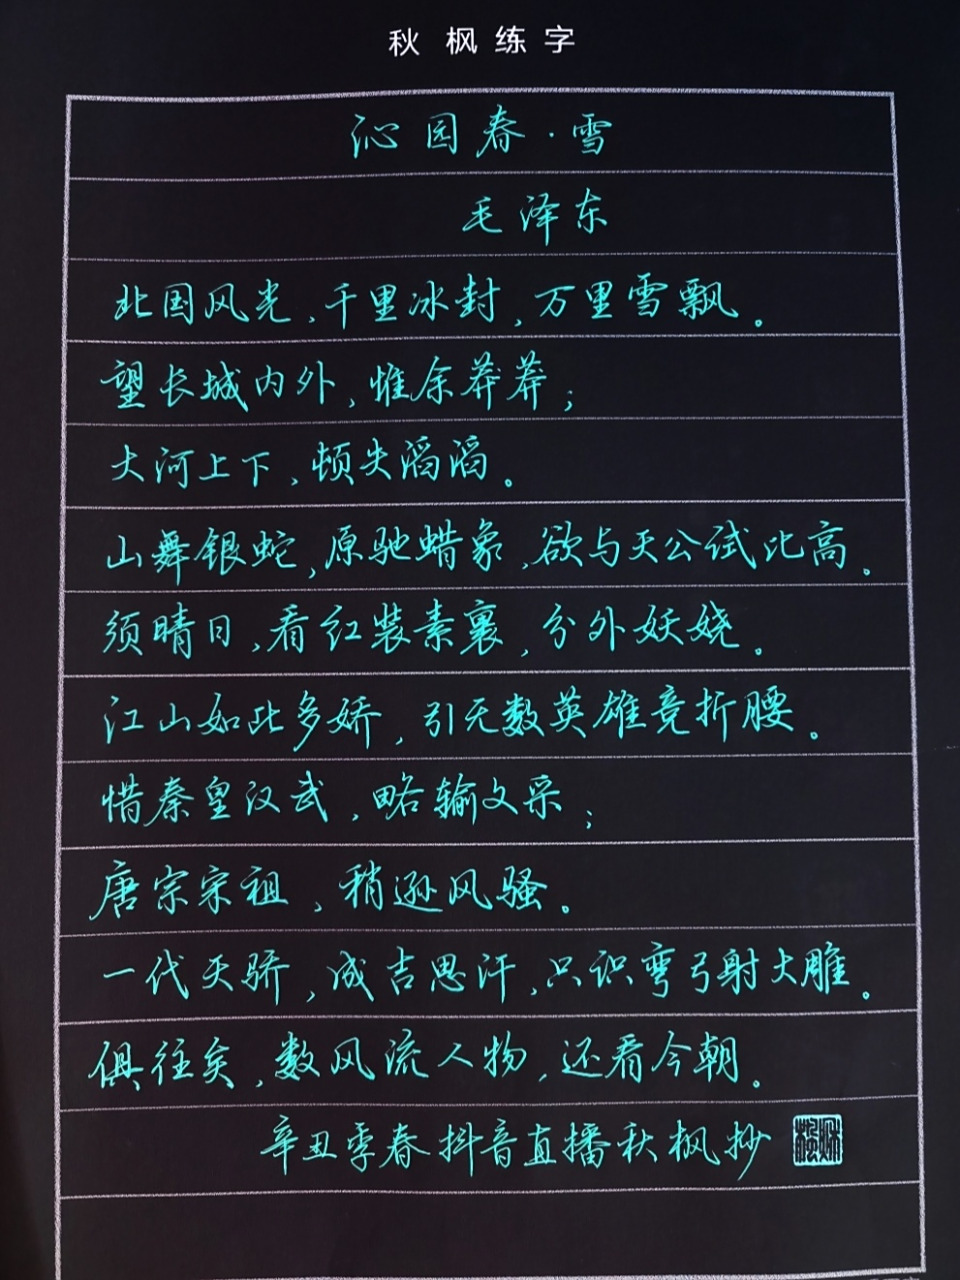 秋枫练字
沁园春·雪
毛泽东
北国风光，千里冰封，万里雪飘。
望长城内外，惟余莽莽；
大河上下，顿失滔滔。
山舞银蛇，原驰蜡象，欲与天公试比高。
须晴日，看红装素裹，分外妖娆。
江山如此多娇，引无数英雄竞折腰。
惜秦皇汉武，略输文采；
唐宗宋祖，稍逊风骚。
一代天骄，成吉思汗，只识弯弓射大雕。
俱往矣，数风流人物，还看今朝。
辛丑季春抖音直播秋枫抄